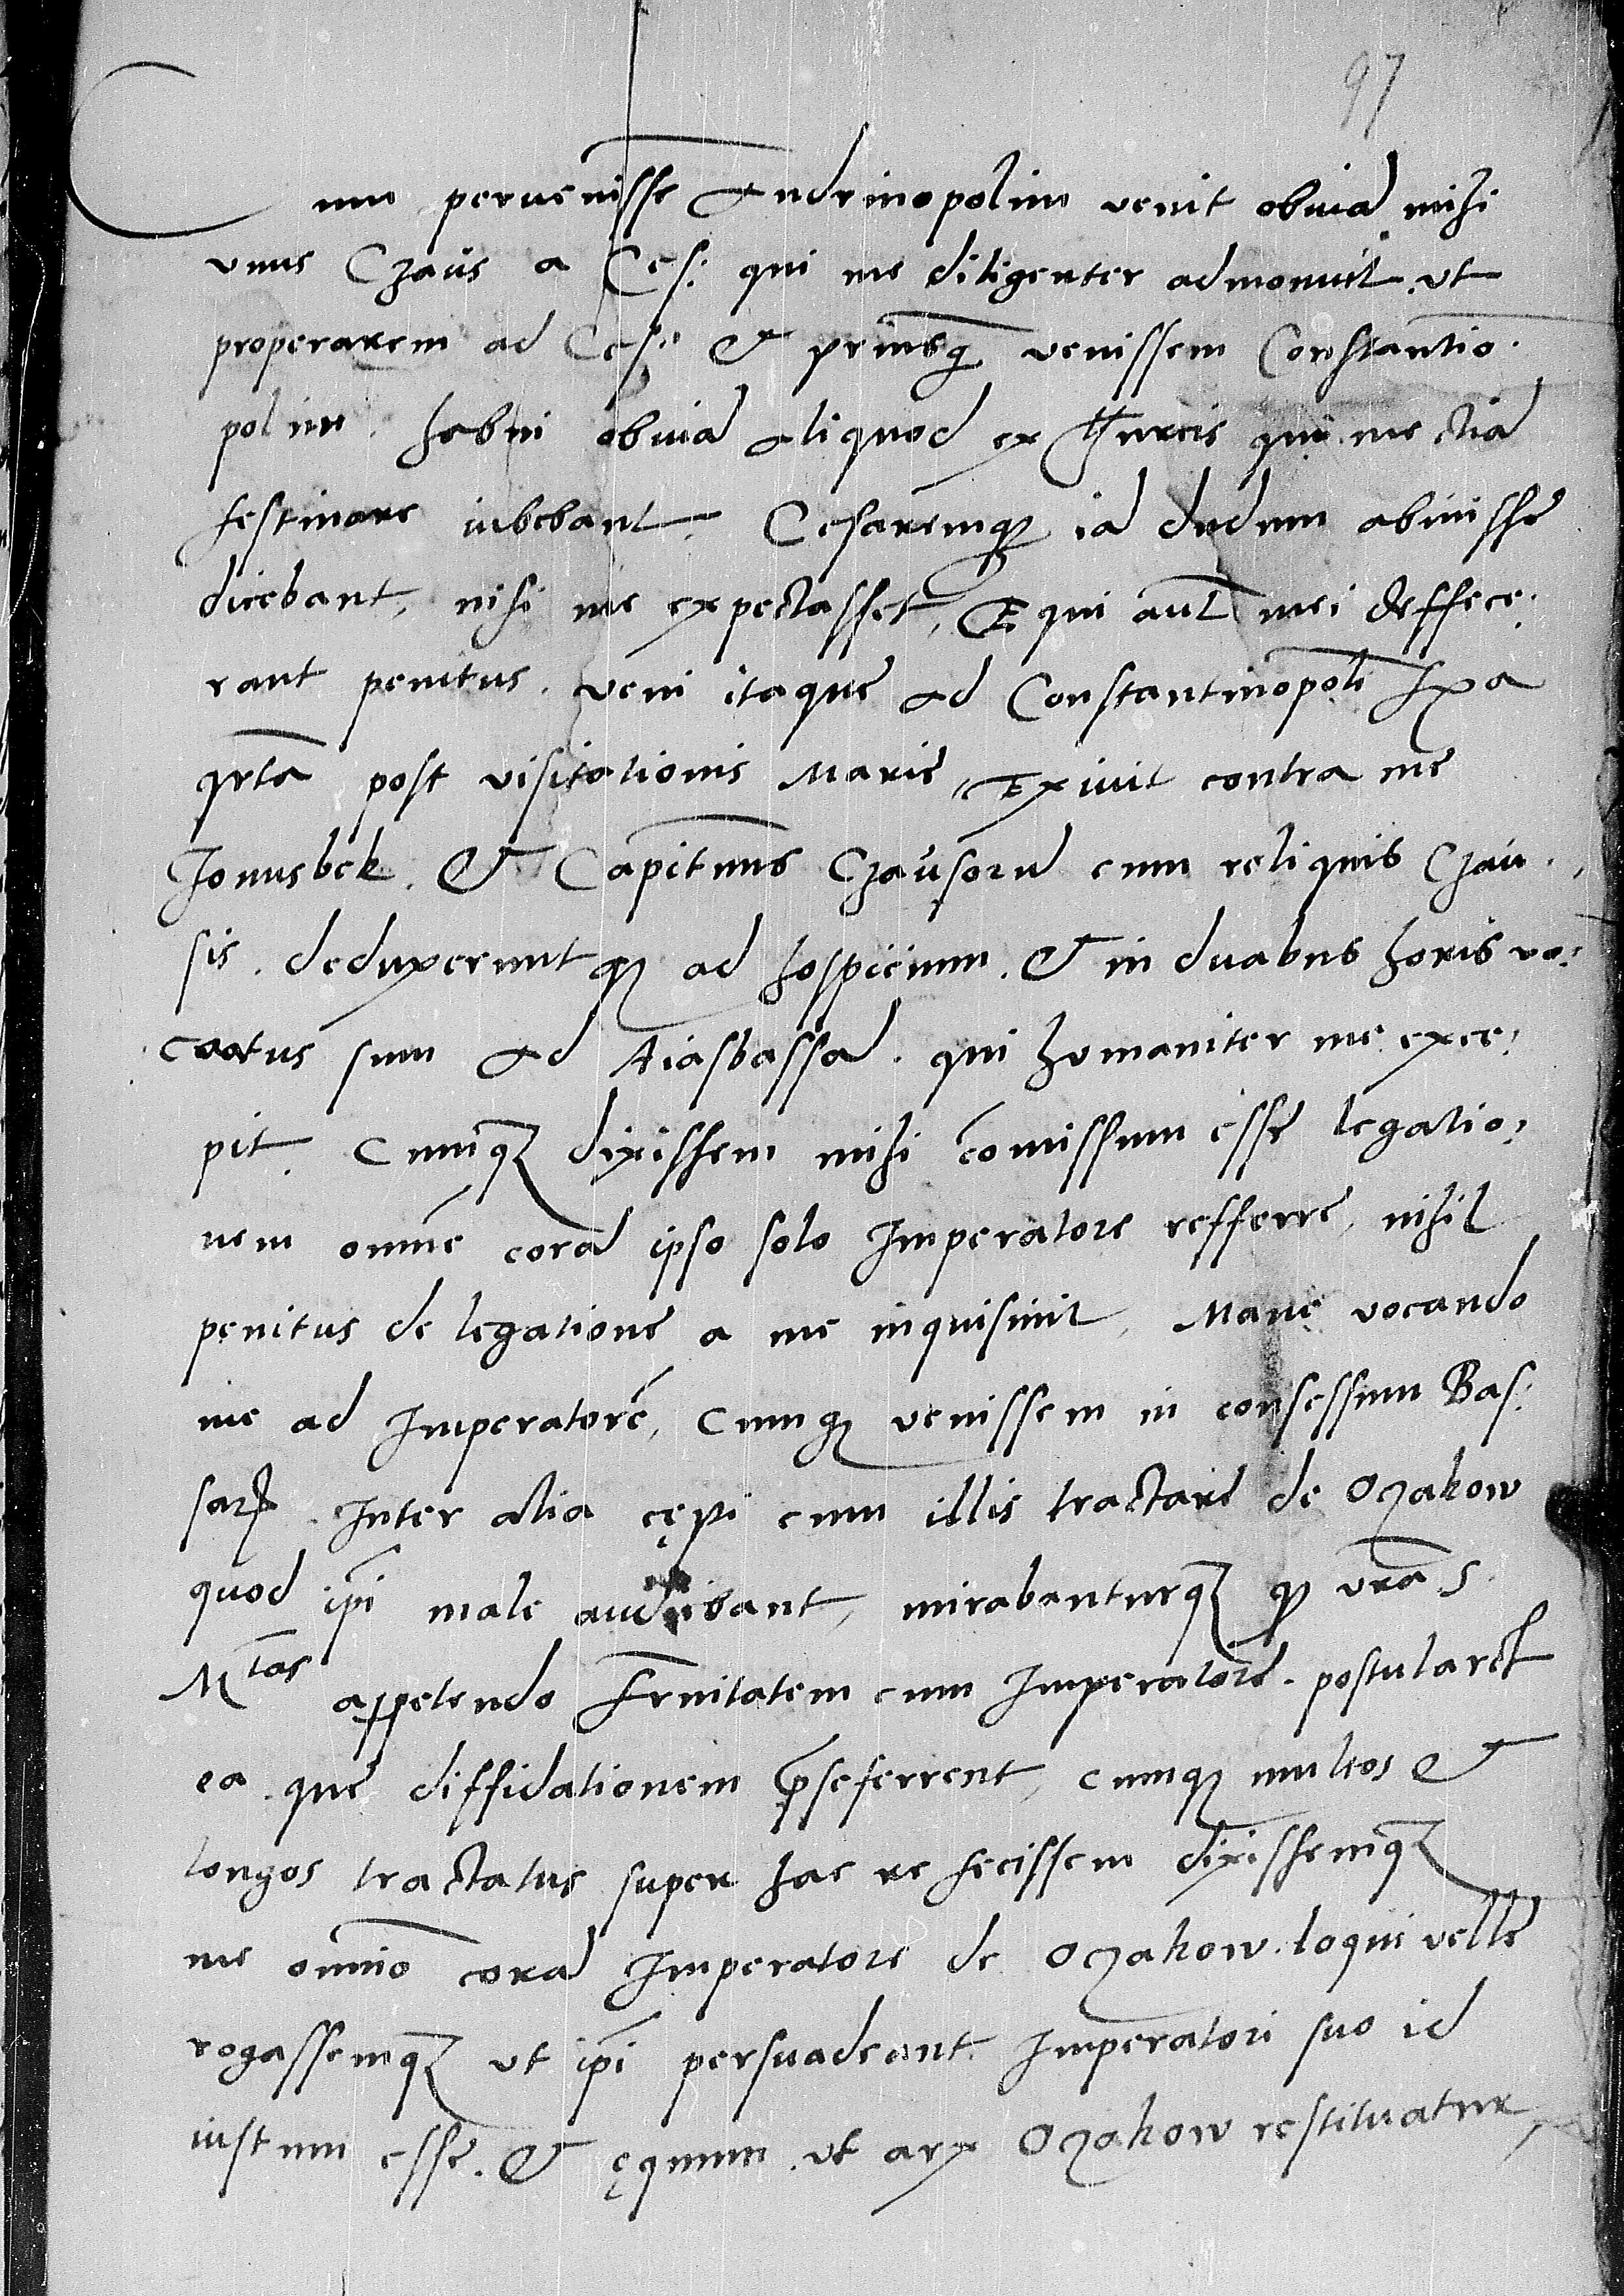 97
Cum peruenisse Andrinopolim venit obuiā mihi
vnus Czaus a Ces: qui me diligenter admonuit vt
properarem ad Ces: & priusq̃ venissem Constantio-
polim. habui obuiā aliquod ex Thurcis qui me etiā
festinare iubebant. Cesaremq₃ iā dudum abiuisse
dicebant, nisi me expectasset, Equi aūt mei deffece:
rant penitus. veni itaque ad Constantinopolī
post visitationis Marie, Exiuit contra me
Jonusbek. & Capitaneus Czausorū cum reliquis Czau-
sis. deduxeruntq₃ ad hospicium. & in duabus horis vo:
catus sum ad Aiasbassā. qui humaniter me exce:
pit. Cumq₃ dixissem mihi cōmissum esse legatio:
nem omnē corā ipso solo Imperatore refferre, nihil
penitus de legatione a me inquisiuit, Mane vocando
me ad Imperatorē, Cumq₃ venissem in consessum Bas:
sarꝝ. Inter alia cępi cum illis tractare de Oczakow
quod ip̄i male audiebant, mirabanturq₃ qd vr̄a S.
Mtas appetendo Fr̄nitatem cum Imperatore. postularet
ea. que diffidationem p̄seferrent, cumq₃ multos &
longos tractatus super hac re fecissem dixissemq₃
me omnīo corā Imperatore de Oczakow. loqui velle
rogassemq₃ vt ip̄i persuadeant Imperatori suo id
iustum esse. & ęquum. vt arx Oczakow restituatur,